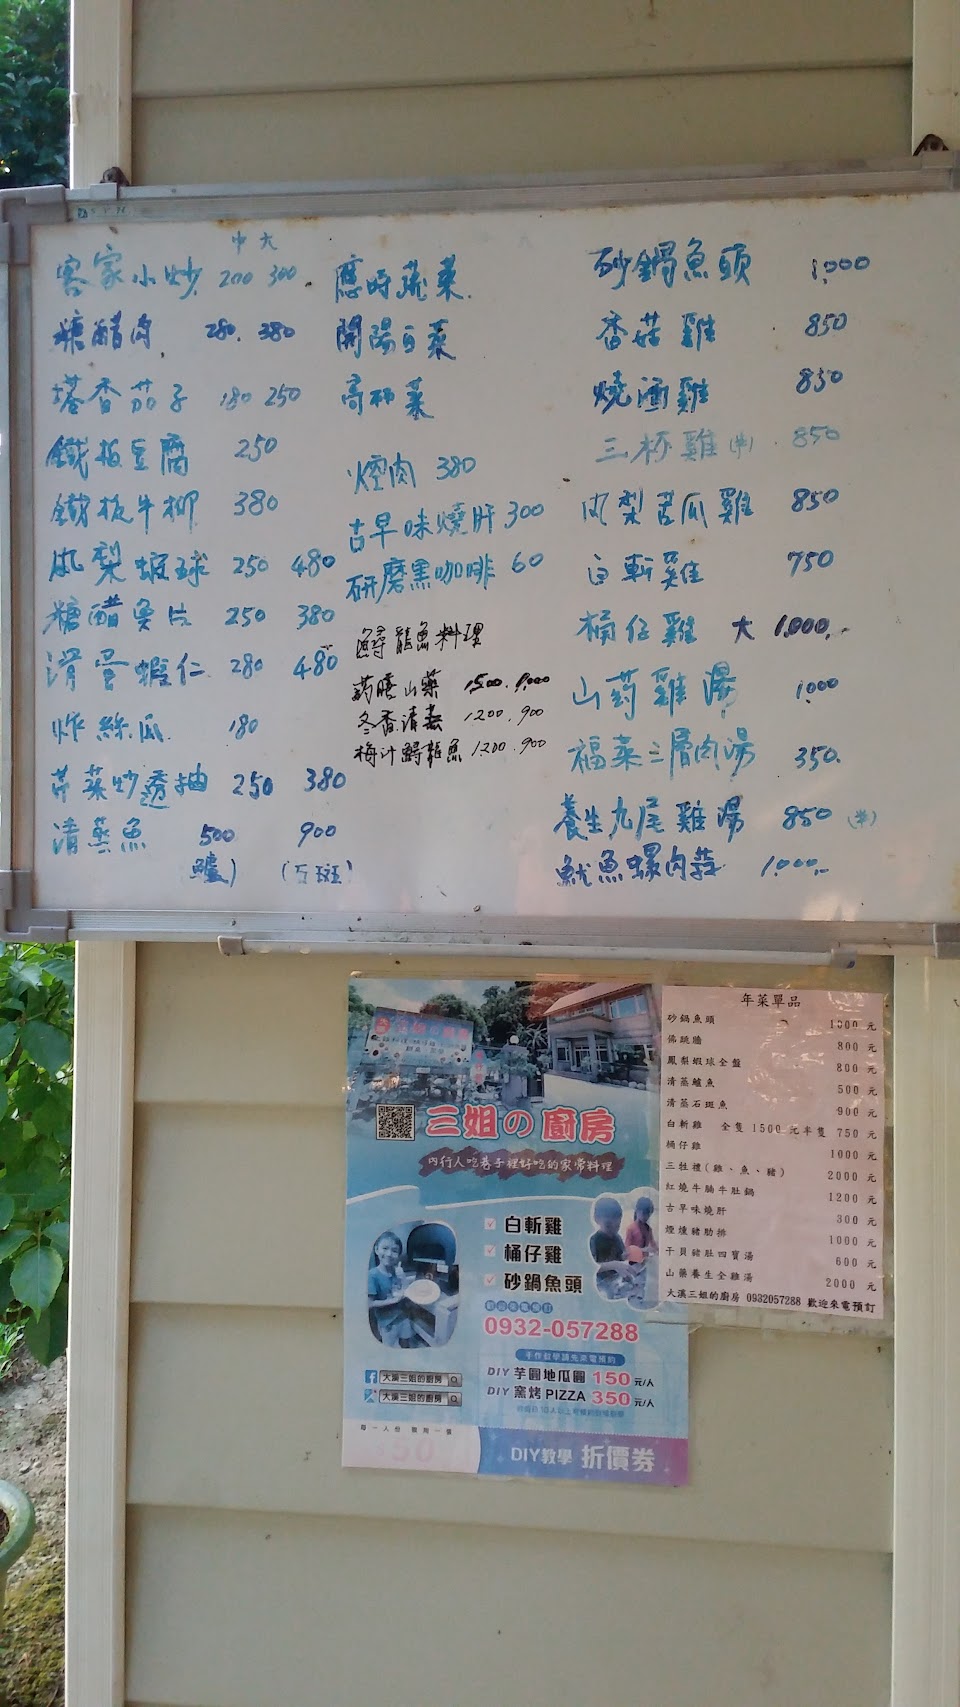 中 大
客家小炒 200 300
糖醋肉 280. 380
塔香茄子 180 250
鐵板豆腐 250
鐵板牛柳 380
凤梨蝦球 250 480
糖醋魚片 250 380
滑蛋蝦仁 280 480
炸絲瓜 180
芹菜炒透抽 250 380
清蒸魚 500 900
鱸) (石斑)
應時蔬菜
開陽白菜
高麗菜
焢肉 380
古早味燒肝 300
研磨黑咖啡 60
鱘龍魚料理
药膳山藥 1500. 1,000
冬香清蒸 1200.900
梅汁鱘龍魚 1200.900
砂鍋魚頭 1,000
香菇雞 850
燒酒雞 850
三杯雞(半) 850
凤梨苦瓜雞 850
白斬雞 750
桶仔雞 大 1,000.
山药雞湯 1,000
福菜三層肉湯 350.
養生九尾雞湯 850 (半)
魷魚螺肉蒜 1,000.
三姐の廚房
內行人吃巷子裡好吃的家常料理
白斬雞
桶仔雞
砂鍋魚頭
0932-057288
手作教學請先來電預約
DIY 芋圓地瓜圓 150元/人
DIY 窯烤PIZZA 350元/人
大溪三姐的廚房
大溪三姐的廚房
每一人份 限用一張
50
DIY教學 折價券
年菜單品
砂鍋魚頭 1000 元
佛跳牆 800 元
鳳梨蝦球全盤 800 元
清蒸鱸魚 500 元
清蒸石斑魚 900 元
白斬雞 全隻 1500 元半隻 750 元
桶仔雞 1000 元
三牲禮(雞、魚、豬) 2000 元
紅燒牛腩牛肚鍋 1200 元
古早味燒肝 300 元
煙燻豬肋排 1000 元
干貝豬肚四寶湯 600 元
山藥養生全雞湯 2000 元
大溪三姐的廚房 0932057288 歡迎來電預訂